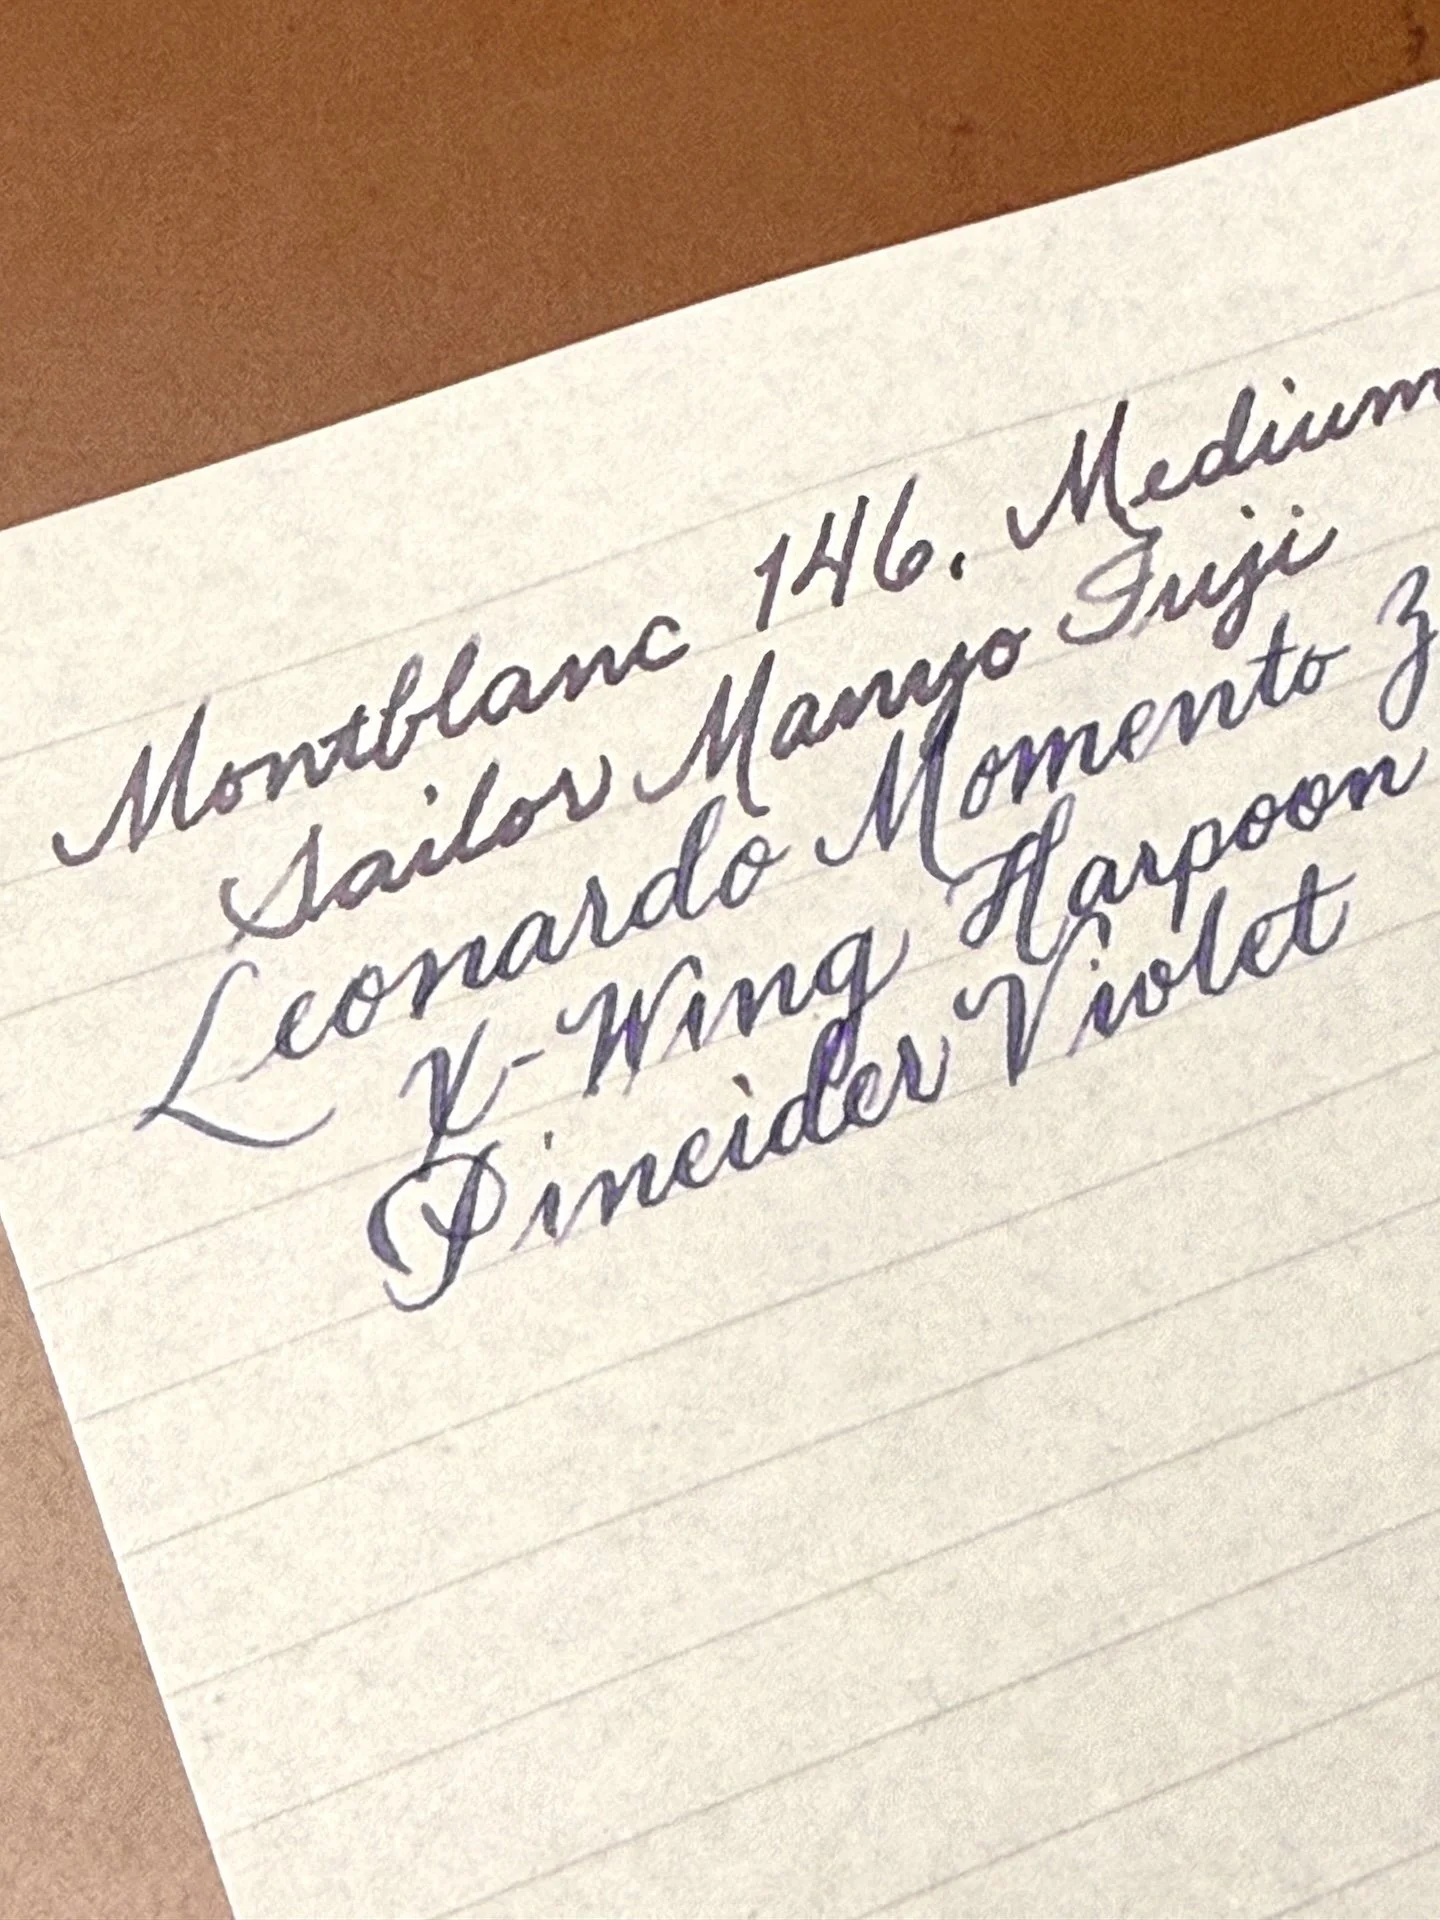 Montblanc 146. Medium
Sailor Manyo Fuji
Leonardo Momento Z
X-Wing Harpoon
Pineider Violet